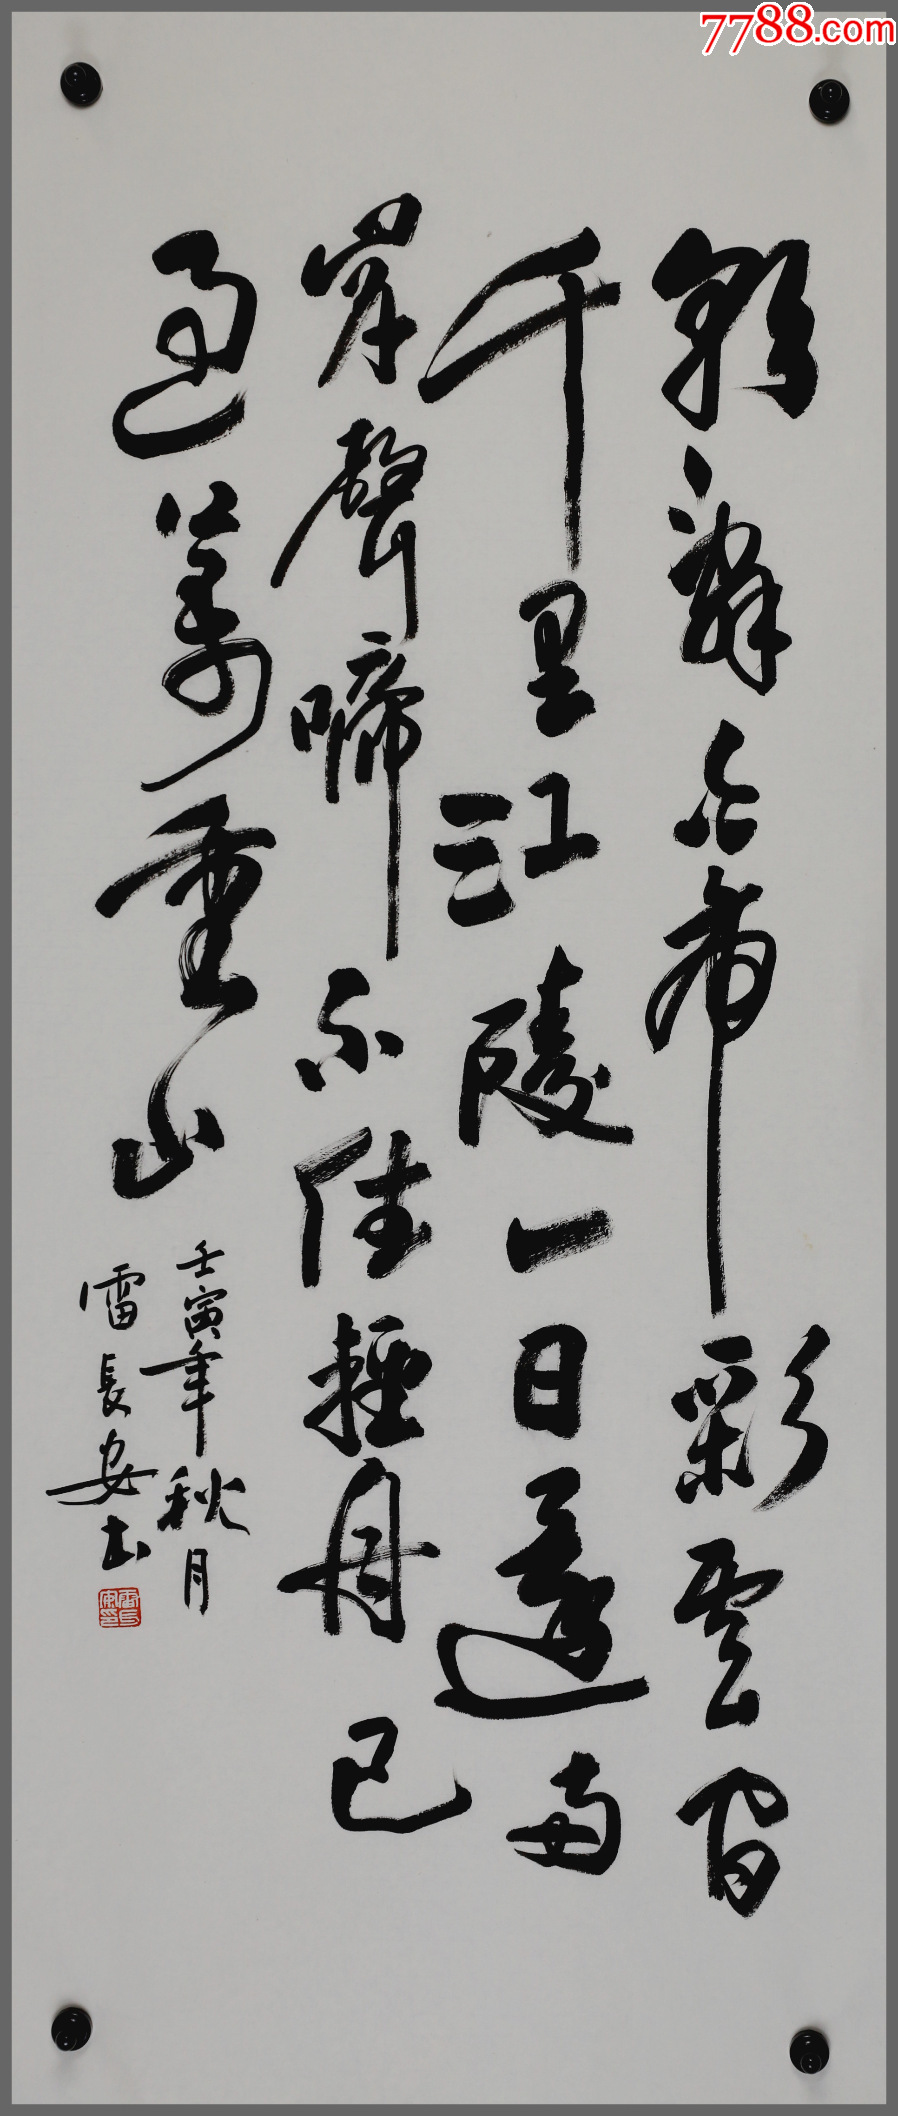 7788.com
朝辭白帝彩雲間
千里江陵一日還兩
岸聲啼不住輕舟已
過萬重山
壬寅年秋月
雷長安书